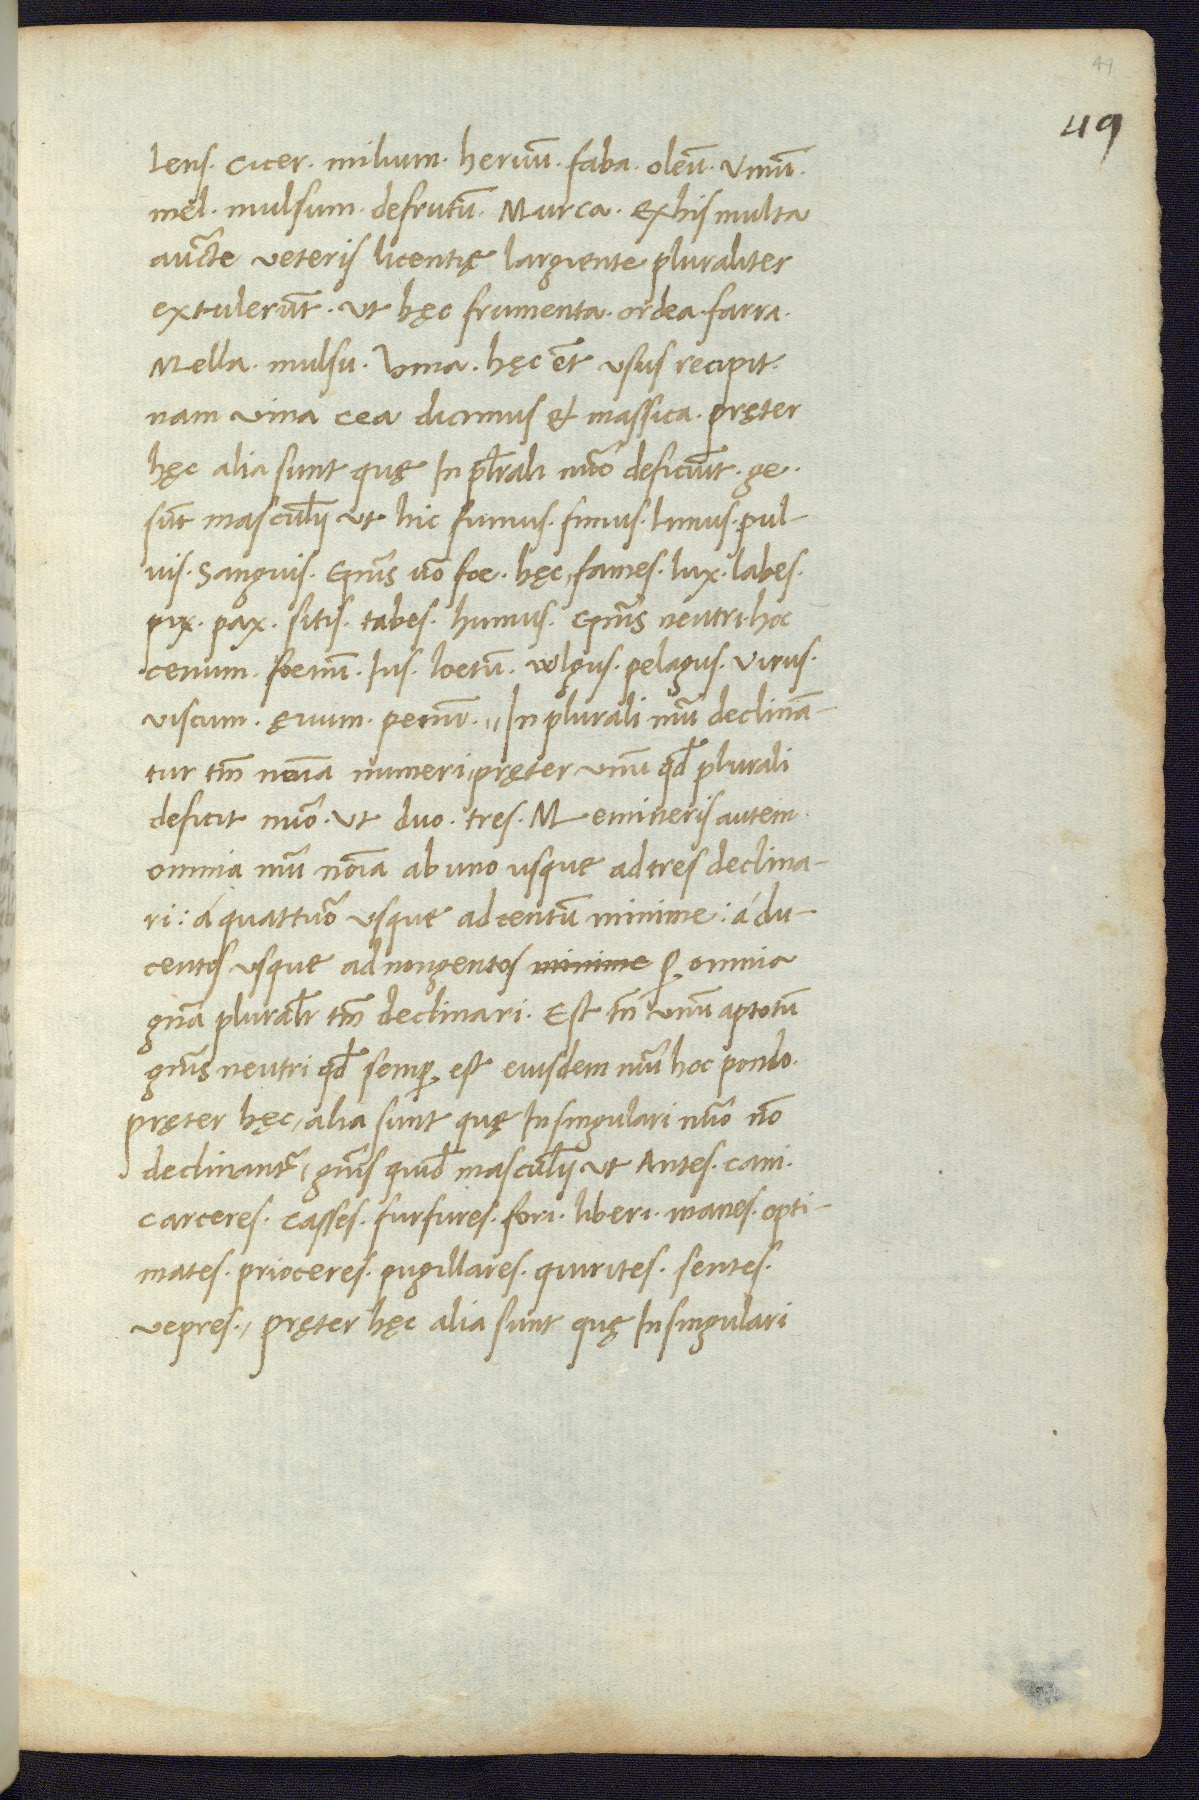 49
49
lens. cicer. milium. heruũ. faba. oleũ. Vinũ.
mel. mulsum. defrutũ. Murca. Ex his multa
auc̃te veteris licentię largiente pluraliter
extulerũt. ut hęc frumenta. ordea. farra.
Mella. mulsu. Vina. hęc et̃ usus recipit.
nam vina cea dicimus & massica. pręter
hęc alia sunt quę In pl̃rali nũo deficiũt. ge.
sũt mascul̃ii ut hic fumus. fimus. limus. pul-
uis. Sanguis. Gnĩs uõ foe. hęc, fames. lux. labes.
pix. pax. sitis. tabes. humus. Gnĩs neutri. hoc
cenum. foenũ. Ius. loetũ. vvlgus. pelagus. Virus.
viscum. ęuum. penũ. ,, In plurali nũu declinã-
tur tm̃ noĩa numeri, pręter vnũ qd̃ plurali
deficit nũo. Ut duo. tres. Memineris autem.
omnia nũu noĩa ab uno usque ad tres declina-
ri: á quattuõ usque ad centũ minime: á du-
centos usque ad nongentos minime p̱ omnia
gnã plural̃r tm̃ declinari. Est tñ vnũ aptotũ
gnĩs neutri qd̃ semp̱ est eiusdem nũu hoc pondo.
pręter hęc, alia sunt quę In singulari nũo nõ
declinant᷑, gnĩs quid̃ mascul̃ii ut Antes. cani.
carceres. casses. furfures. fori. liberi. manes. opti-
mates. prioceres. pugillares. quirites. sentes.
vepres., pręter hęc alia sunt quę In singulari